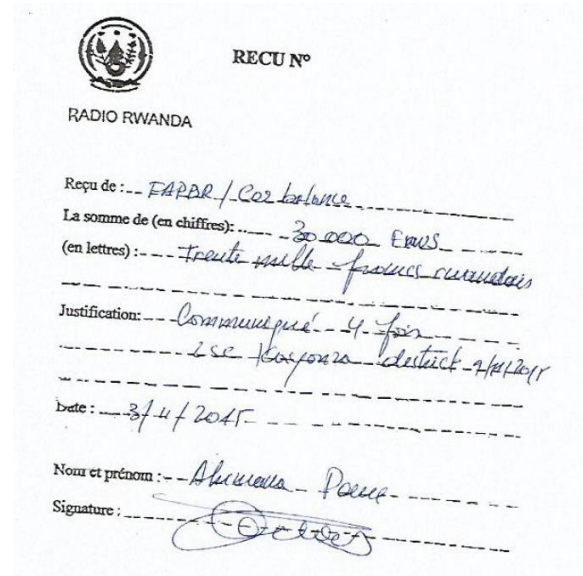 RECU N°
RADIO RWANDA
Reçu de : FAPDR / Co2 balance
La somme de (en chiffres): 30.000 FRWS
(en lettres) : Trente mille francs rwandais
Justification: Communiqué 4 fois
LSC Kayonza district
Date : 3/11/2015
Nom et prénom :
Signature :